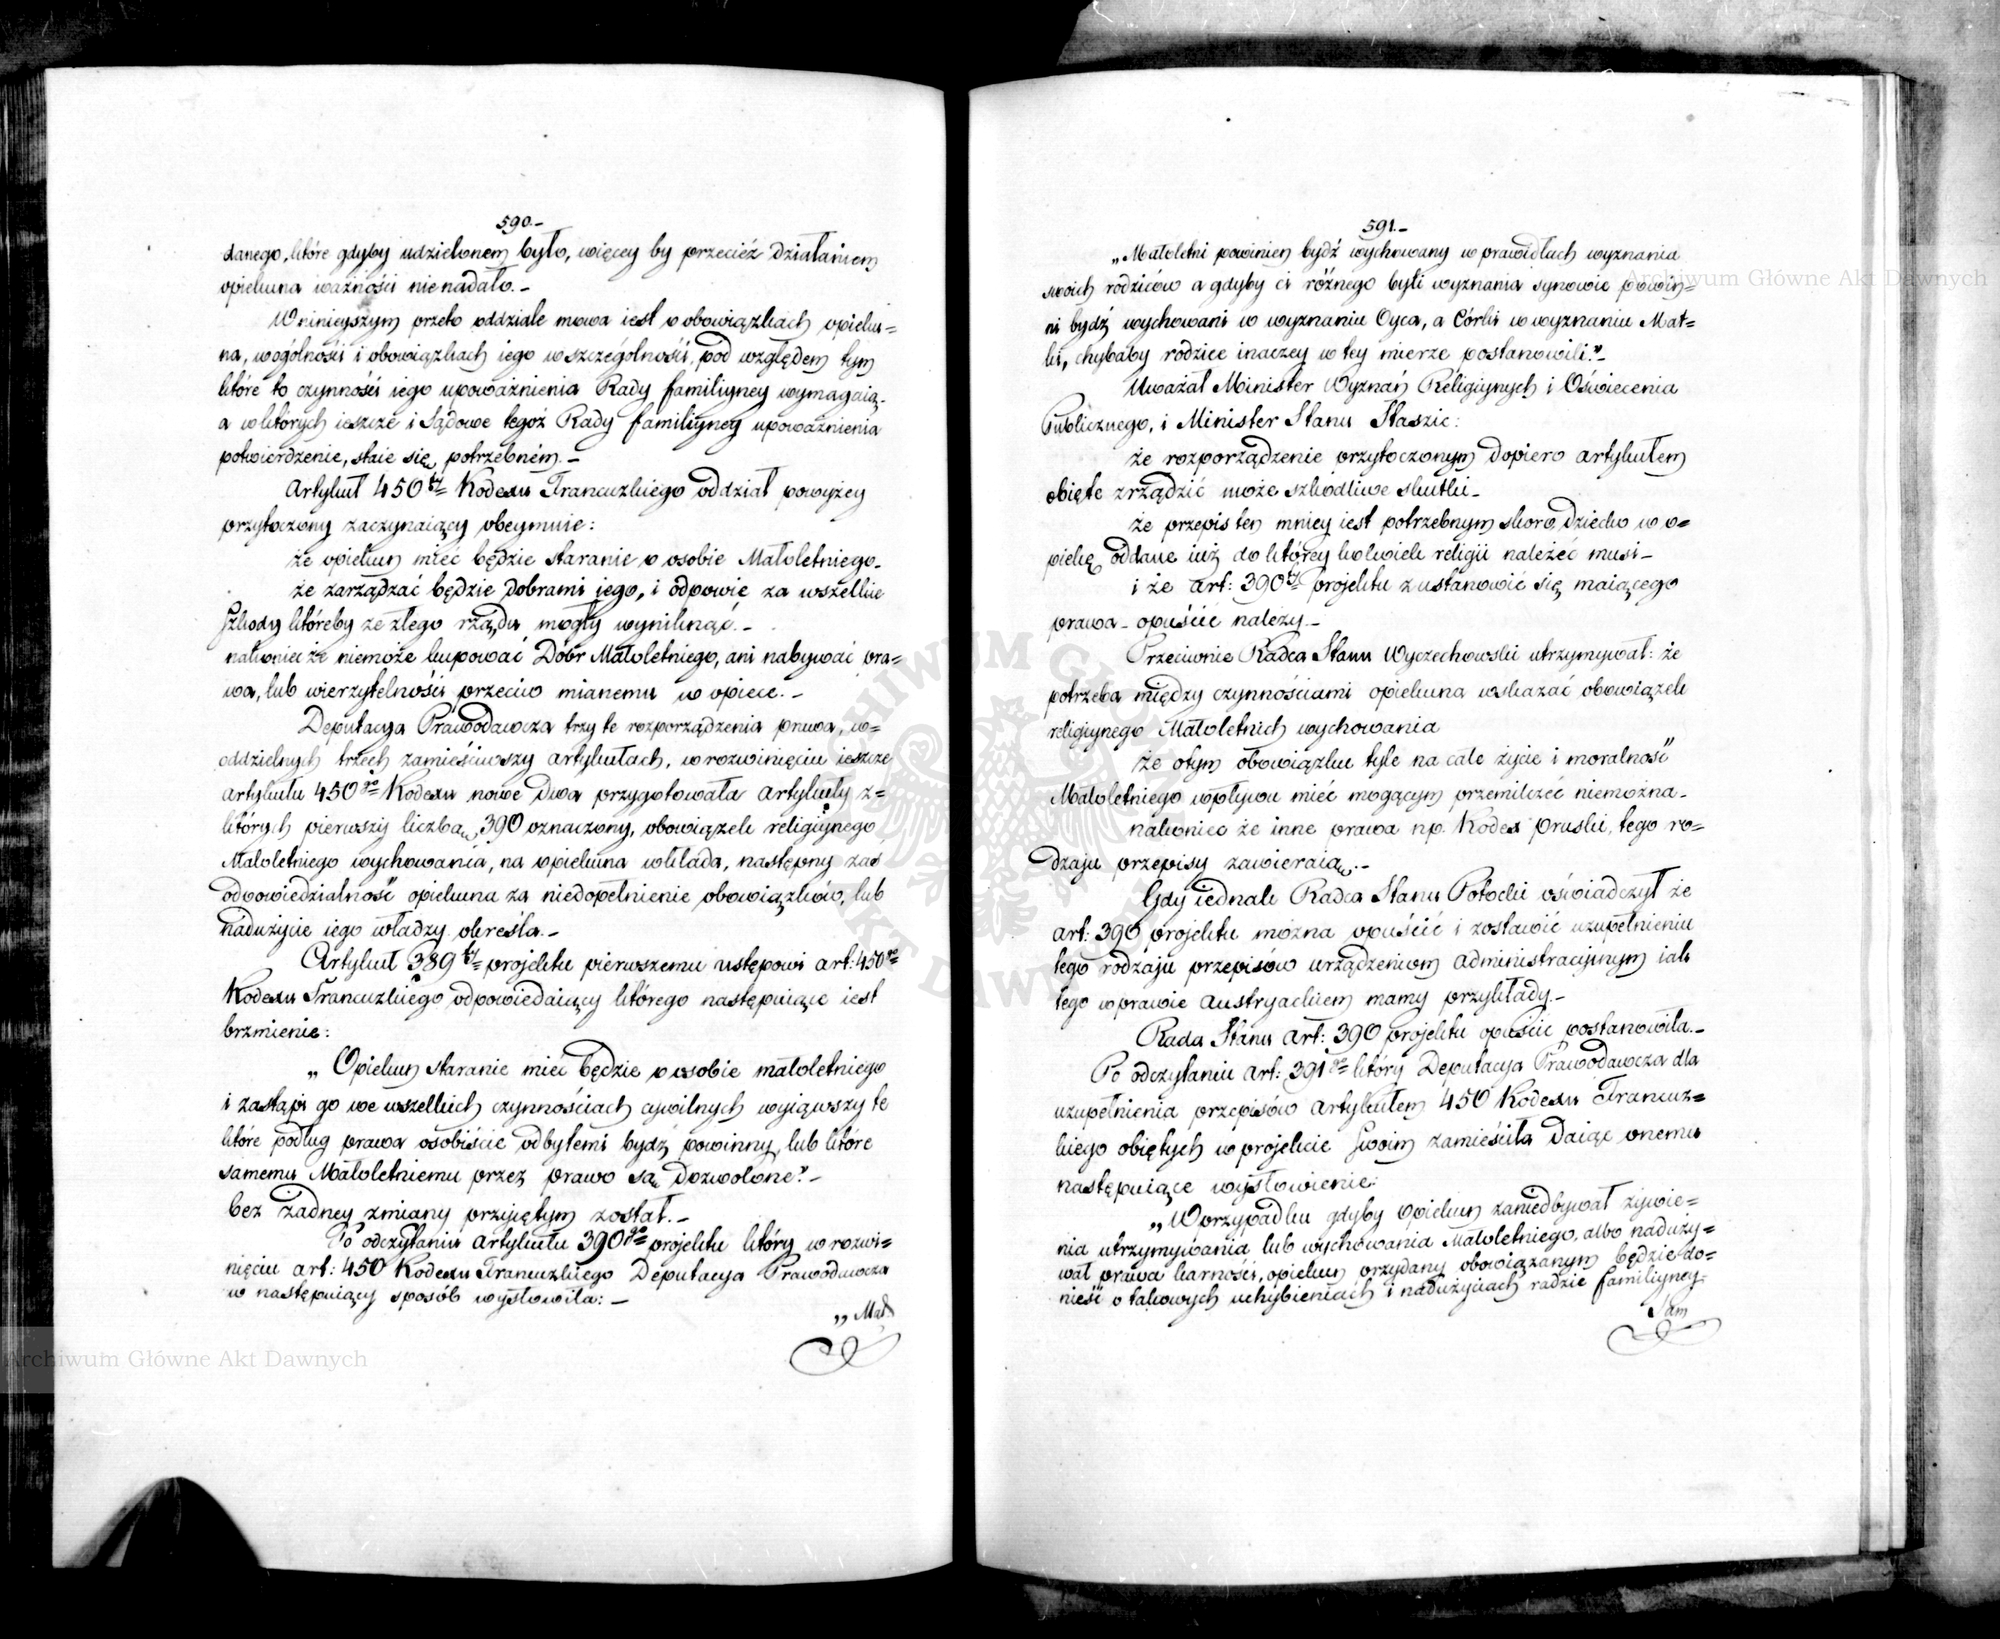 590.-
danego, które gdyby udzielonem było, więcey by przecież działaniom
opiekuna ważności nienadało.-
Wninieyszym przeto oddziale mowa iest o obowiązkach opieku=
na, wogólności i obowiązkach iego wszczególności, pod względem tym
które to czynności iego upoważnienia Rady familiyney wymagaią.
a wktórych ieszcze i Sądowe tegoż Rady familiyney upoważnienia
potwierdzenie, staie się potrzebném.-
Artykuł 450ty Kodexu Francuzkiego oddział powyżey
przytoczony zaczynaiący obeymuie:
że opiekun mieć będzie staranie o osobie Małoletniego.
że zarządzać będzie dobrami iego, i odpowie za wszelkie
Szkody któreby ze złego rządu mogły wyniknąć.-
nakoniec że niemoże kupować Dóbr Małoletniego, ani nabywać pra=
wa, lub wierzytelności przeciw mianemu w opiece.-
Deputacya Prawodawcza trzy te rozporządzenia prawa, w=
oddzielnych trzech zamieściwszy artykułach, w rozwinięciu ieszcze
artykułu 450go Kodexu nowe dwa przygotowała artykuły z=
których pierwszy liczbą 390 oznaczony, obowiązek religiynego
Małoletniego wychowania, na opiekuna wkłada, następny zaś
odpowiedzialność opiekuna za niedopełnienie obowiązków, lub
nadużycie iego władzy określa.-
Artykuł 389ty projektu pierwszemu ustępowi art: 450go
Kodexu Francuzkiego odpowiedaiący którego następuiące iest
brzmienie:
„Opiekun staranie mieć będzie o osobie małoletniego
i zastąpi go we wszelkich czynnościach cywilnych wyiąwszy te
które podług prawa osobiście odbytemi bydź powinny, lub które
samemu Małoletniemu przez prawo są dozwolone."-
bez żadney zmiany przyiętym został.-
Po odczytaniu artykułu 390go projektu który w rozwi=
nięciu art: 450 Kodexu Francuzkiego Deputacya Prawodawcza
w następuiący sposób wysłowiła:-
„Mał
591.-
„Małoletni powinien bydź wychowany w prawidłach wyznania
swoich rodziców a gdyby ci różnego byli wyznania synowie powin=
ni bydź wychowani w wyznaniu Oyca, a Córki w wyznaniu Mat=
ki, chybaby rodzice inaczey w tey mierze postanowili."-
Uważał Minister Wyznań Religiynych i Oświecenia
Publicznego, i Minister Stanu Staszic:
że rozporządzenie przytoczonym dopiero artykułem
obięte zrządzić może szkodliwe skutki-
że przepis ten mniey iest potrzebnym skoro dziecko w o=
piekę oddane iuż do którey kolwiek religii należeć musi-
i że art: 390ty projektu zustanowić się maiącego
prawa- opuścić należy.-
Przeciwnie Radca Stanu Wyczechowski utrzymywał: że
potrzeba między czynnościami opiekuna wskazać obowiązek
religiynego Małoletnich wychowania
że otym obowiązku tyle na całe życie i moralność
Małoletniego wpływu mieć mogącym przemilczeć niemożna-
nakoniec że inne prawa np. Kodex pruski, tego ro=
dzaju przepisy zawieraią.-
Gdy iednak Radca Stanu Potocki oświadczył że
art: 390 projektu można opuścić i zostawić uzupełnieniu
tego rodzaju przepisow urządzeniom administracyinym iak
tego w prawie austryackiem mamy przykłady.-
Rada Stanu art: 390 projektu opuścić postanowiła.-
Po odczytaniu art: 391go który Deputacya Prawodawcza dla
uzupełnienia przepisów artykułem 450 Kodexu Francuz=
kiego obiętych w projekcie Swoim zamieściła daiąc onemu
następuiące wysłowienie:
„W przypadku gdyby opiekun zaniedbywał żywie=
nia utrzymywania lub wychowania Małoletniego, albo naduży=
wał prawa karności, opiekun przydany obowiązanym będzie do=
nieść o takowych uchybieniach i nadużyciach radzie familiyney.
Sam
Archiwum Główne Akt Dawnych
Archiwum Główne Akt Dawnych
ARCHIWUM GŁÓWNE AKT DAWNYCH